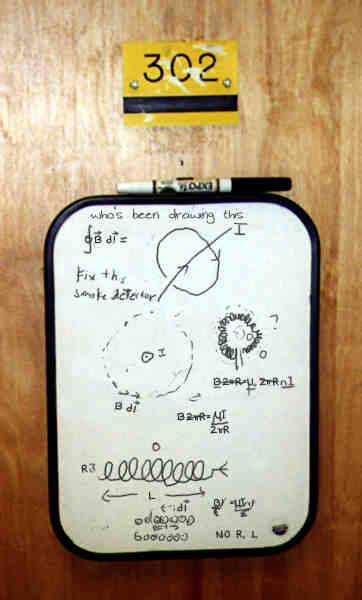 302
EXPO
who's been drawing this
∮B⃗ dl⃗ =
I
Fix the
smoke detector
I
?
B2πR = μ 2πR n I
B dl⃗
B2πR = μI
2πR
R3
L
dl⃗
NO R. L